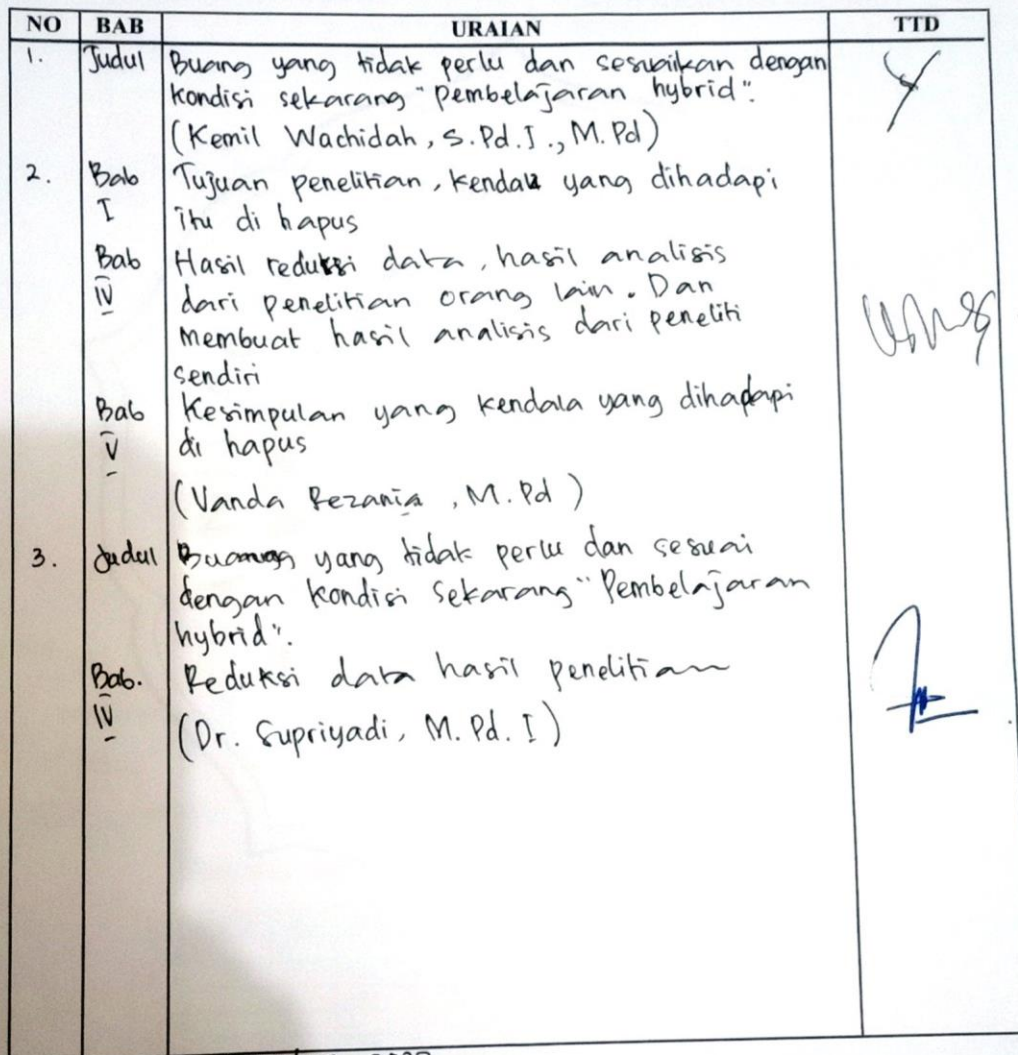 NO BAB URAIAN TTD
1. Judul Buang yang tidak perlu dan sesuaikan dengan
kondisi sekarang "Pembelajaran hybrid".
(Kemil Wachidah, S.Pd.I., M.Pd)
2. Bab Tujuan penelitian, kendala yang dihadapi
I itu di hapus
Bab Hasil reduksi data, hasil analisis
IV dari penelitian orang lain. Dan
membuat hasil analisis dari peneliti
sendiri
Bab Kesimpulan yang kendala yang dihadapi
V di hapus
(Vanda Rezania, M.Pd)
3. Judul Buang yang tidak perlu dan sesuai
dengan kondisi Sekarang "Pembelajaran
hybrid".
Bab. Reduksi data hasil penelitian
IV (Dr. Supriyadi, M.Pd.I)